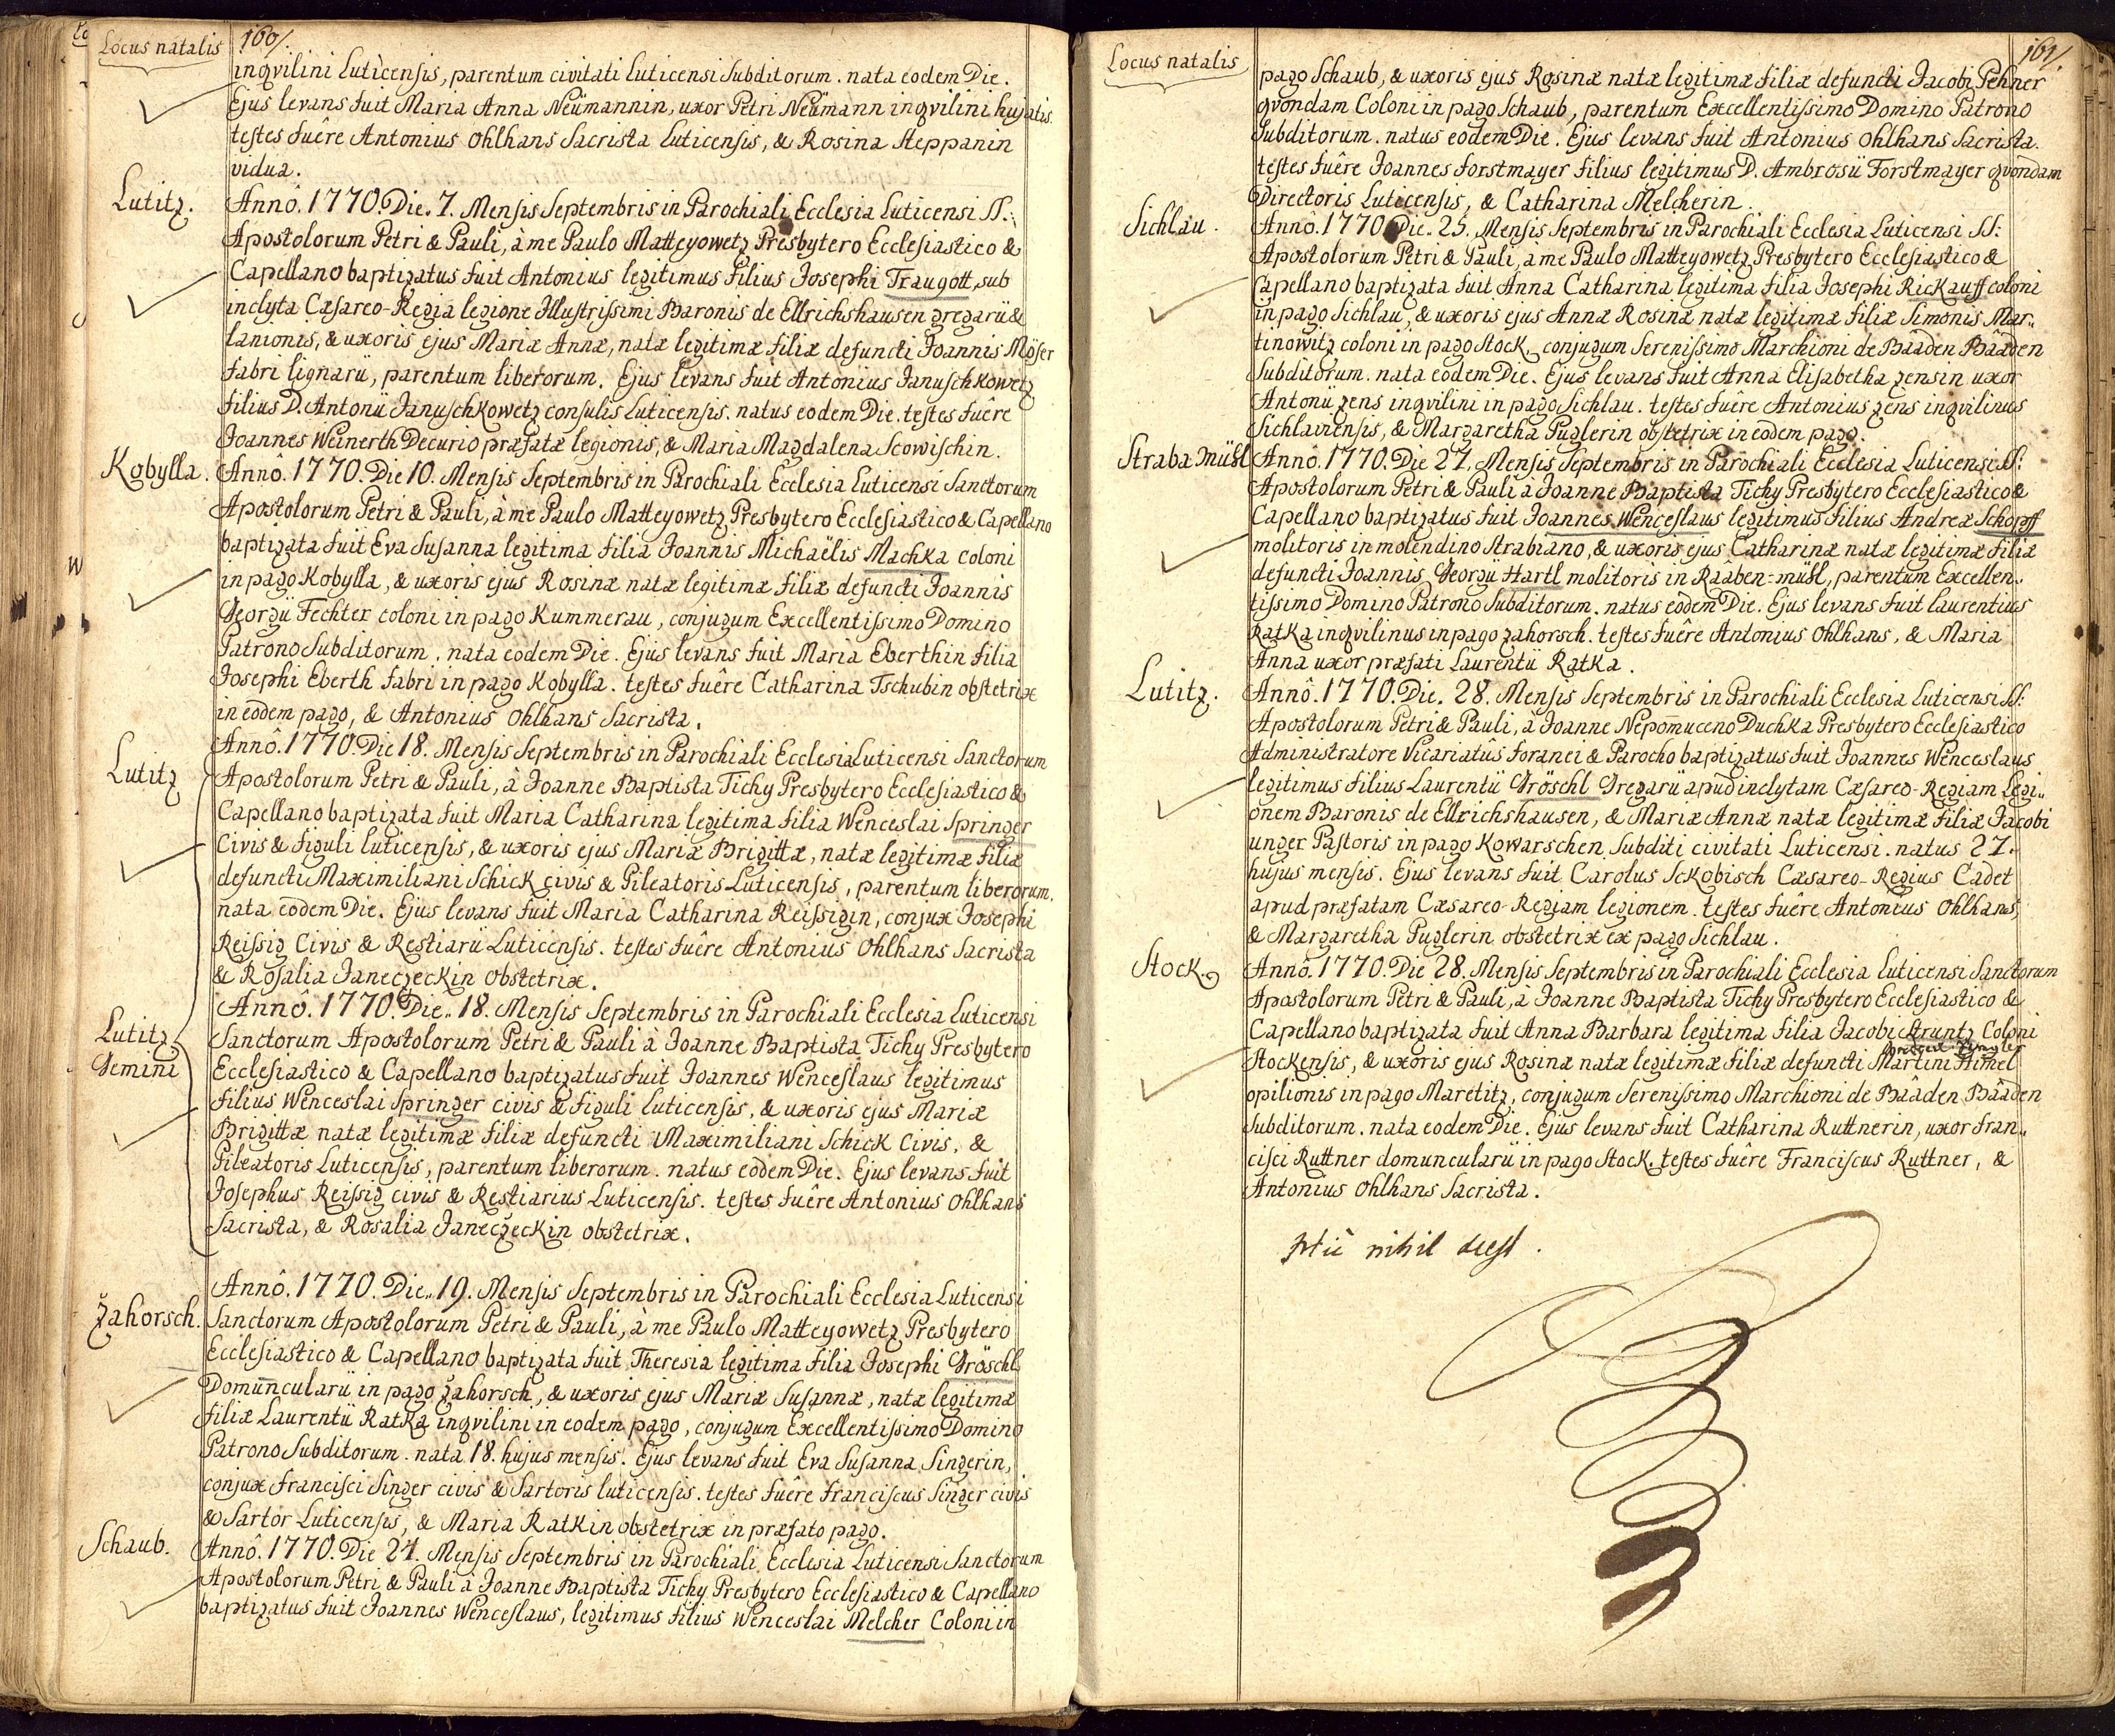 Locus natalis
160/.
inqvilini Luticensis, parentum civitati Luticensi Subditorum. nata eodem Die.
Ejus levans fuit Maria Anna Neümannin, uxor Petri Neümann inqvilini hujatis.
testes fuêre Antonius Ohlhans Sacrista Luticensis, & Rosina Steppanin
vidua.
Lutitz.
Annô. 1770. Die. 7. Mensis Septembris in Parochiali Ecclesia Luticensi SS.
Apostolorum Petri & Pauli, à me Paulo Matteyowetz Presbytero Ecclesiastico &
Capellano baptizatus fuit Antonius legitimus filius Josephi Traugott, sub
inclyta Cæsareo-Regia legione Illustrissimi Baronis de Ellrichshausen gregarii &
lanionis, & uxoris ejus Mariæ Annæ, natæ legitimæ filiæ defuncti Joannis Moser
fabri lignarii, parentum liberorum. Ejus levans fuit Antonius Januschkowetz
filius D. Antonii Januschkowetz consulis Luticensis. natus eodem Die. testes fuêre
Joannes Weinerth Decurio præfatæ legionis, & Maria Magdalena Scowischin.
Kobylla.
Annô. 1770. Die 10. Mensis Septembris in Parochiali Ecclesia Luticensi Sanctorum
Apostolorum Petri & Pauli, à me Paulo Matteyowetz Presbytero Ecclesiastico & Capellano
baptizata fuit Eva Susanna legitima filia Joannis Michaëlis Machka coloni
in pago Kobylla, & uxoris ejus Rosinæ natæ legitimæ filiæ defuncti Joannis
Georgii Fechter coloni in pago Kummerau, conjugum Excellentissimo Domino
Patrono Subditorum. nata eodem Die. Ejus levans fuit Maria Eberthin filia
Josephi Eberth fabri in pago Kobylla. testes fuêre Catharina Tschubin obstetrix
in eodem pago, & Antonius Ohlhans Sacrista.
Lutitz
Annô. 1770. Die 18. Mensis Septembris in Parochiali Ecclesia Luticensi Sanctorum
Apostolorum Petri & Pauli, à Joanne Baptista Tichy Presbytero Ecclesiastico &
Capellano baptizata fuit Maria Catharina legitima filia Wenceslai Springer
Civis & figuli luticensis, & uxoris ejus Mariæ Brigittæ, natæ legitimæ filiæ
defuncti Maximiliani Schick civis & Pileatoris Luticensis, parentum liberorum.
nata eodem Die. Ejus levans fuit Maria Catharina Reissigin, conjux Josephi
Reissig Civis & Restiarii Luticensis. testes fuêre Antonius Ohlhans Sacrista
& Rosalia Janeczeckin Obstetrix.
Lutitz
Gemini
Annô. 1770. Die. 18. Mensis Septembris in Parochiali Ecclesia Luticensi
Sanctorum Apostolorum Petri & Pauli à Joanne Baptista Tichy Presbytero
Ecclesiastico & Capellano baptizatus fuit Joannes Wenceslaus legitimus
filius Wenceslai Springer civis & figuli luticensis, & uxoris ejus Mariæ
Brigittæ natæ legitimæ filiæ defuncti Maximiliani Schick Civis, &
Pileatoris Luticensis, parentum liberorum. natus eodem Die. Ejus levans fuit
Josephus Reissig civis & Restiarius Luticensis. testes fuêre Antonius Ohlhans
Sacrista, & Rosalia Janeczeckin obstetrix.
Žahorsch.
Annô. 1770. Die. 19. Mensis Septembris in Parochiali Ecclesia Luticensi
Sanctorum Apostolorum Petri & Pauli, à me Paulo Matteyowetz Presbytero
Ecclesiastico & Capellano baptizata fuit Theresia legitima filia Josephi Gröschl
Domuncularii in pago Žahorsch, & uxoris ejus Mariæ Susannæ, natæ legitimæ
filiæ Laurentii Ratka inqvilini in eodem pago, conjugum Excellentissimo Domino
Patrono Subditorum. nata 18. hujus mensis. Ejus levans fuit Eva Susanna Singerin,
conjux Francisci Singer civis & Sartoris luticensis. testes fuêre Franciscus Singer civis
& Sartor Luticensis, & Maria Ratkin obstetrix in præfato pago.
Schaub.
Annô. 1770. Die 24. Mensis Septembris in Parochiali Ecclesia Luticensi Sanctorum
Apostolorum Petri & Pauli à Joanne Baptista Tichy Presbytero Ecclesiastico & Capellano
baptizatus fuit Joannes Wenceslaus, legitimus filius Wenceslai Melcher Coloni in
Locus natalis
161/.
pago Schaub, & uxoris ejus Rosinæ natæ legitimæ filiæ defuncti Jacobi Pehner
qvondam Coloni in pago Schaub, parentum Excellentissimo Domino Patrono
Subditorum. natus eodem Die. Ejus levans fuit Antonius Ohlhans Sacrista.
testes fuêre Joannes Forstmayer filius legitimus D. Ambrosii Forstmayer qvondam
Directoris Luticensis, & Catharina Melcherin.
Sichlau.
Annô. 1770 Die. 25. Mensis Septembris in Parochiali Ecclesia Luticensi SS:
Apostolorum Petri & Pauli, à me Paulo Matteyowetz Presbytero Ecclesiastico &
Capellano baptizata fuit Anna Catharina legitima filia Josephi Rickauff coloni
in pago Sichlau, & uxoris ejus Annæ Rosinæ natæ legitimæ filiæ Simonis Mar„
tinowitz coloni in pago Stock, conjugum Serenissimo Marchioni de Bâaden Bâaden
Subditorum. nata eodem Die. Ejus levans fuit Anna Elisabetha Zensin uxor
Antonii Zens inqvilini in pago Sichlau. testes fuêre Antonius Zens inqvilinus
Sichlaviensis, & Margaretha Puglerin obstetrix in eodem pago.
Straba Mühl
Annô. 1770. Die 27. Mensis Septembris in Parochiali Ecclesia Luticensi SS:
Apostolorum Petri & Pauli à Joanne Baptista Tichy Presbytero Ecclesiastico &
Capellano baptizatus fuit Joannes Wenceslaus legitimus filius Andreæ Schopff
molitoris in molendino Strabiano, & uxoris ejus Catharinæ natæ legitimæ filiæ
defuncti Joannis Georgii Hartl molitoris in Rââben-mühl, parentum Excellen„
tissimo Domino Patrono Subditorum. natus eodem Die. Ejus levans fuit Laurentius
Ratka inqvilinus in pago Zahorsch. testes fuêre Antonius Ohlhans, & Maria
Anna uxor præfati Laurentii Ratka.
Lutitz.
Annô. 1770. Die. 28. Mensis Septembris in Parochiali Ecclesia Luticensi SS:
Apostolorum Petri & Pauli, à Joanne Nepomuceno Duchka Presbytero Ecclesiastico
Administratore Vicariatûs foranei & Parocho baptizatus fuit Joannes Wenceslaus
legitimus filius Laurentii Gröschl Gregarii apud inclytam Cæsareo-Regiam Legi„
onem Baronis de Ellrichshausen, & Mariæ Annæ natæ legitimæ filiæ Jacobi
unger Pastoris in pago Kowarschen, Subditi civitati Luticensi. natus 27.
hujus mensis. Ejus levans fuit Carolus Sckobisch Cæsareo-Regius Cadet
apud præfatam Cæsareo-Regiam legionem. testes fuêre Antonius Ohlhans,
& Margaretha Puglerin obstetrix ex pago Sichlau.
Stock.
Annô. 1770. Die 28. Mensis Septembris in Parochiali Ecclesia Luticensi Sanctorum
Apostolorum Petri & Pauli, à Joanne Baptista Tichy Presbytero Ecclesiastico &
Capellano baptizata fuit Anna Barbara legitima filia Jacobi Struntz Coloni
Stockensis, & uxoris ejus Rosinæ natæ legitimæ filiæ defuncti Martini Himel
opilionis in pago Maretitz, conjugum Serenissimo Marchioni de Bââden Bââden
Subditorum. nata eodem Die. Ejus levans fuit Catharina Ruttnerin, uxor Fran„
cisci Ruttner domuncularii in pago Stock. testes fuêre Franciscus Ruttner, &
Antonius Ohlhans Sacrista.
Hic nihil deest.